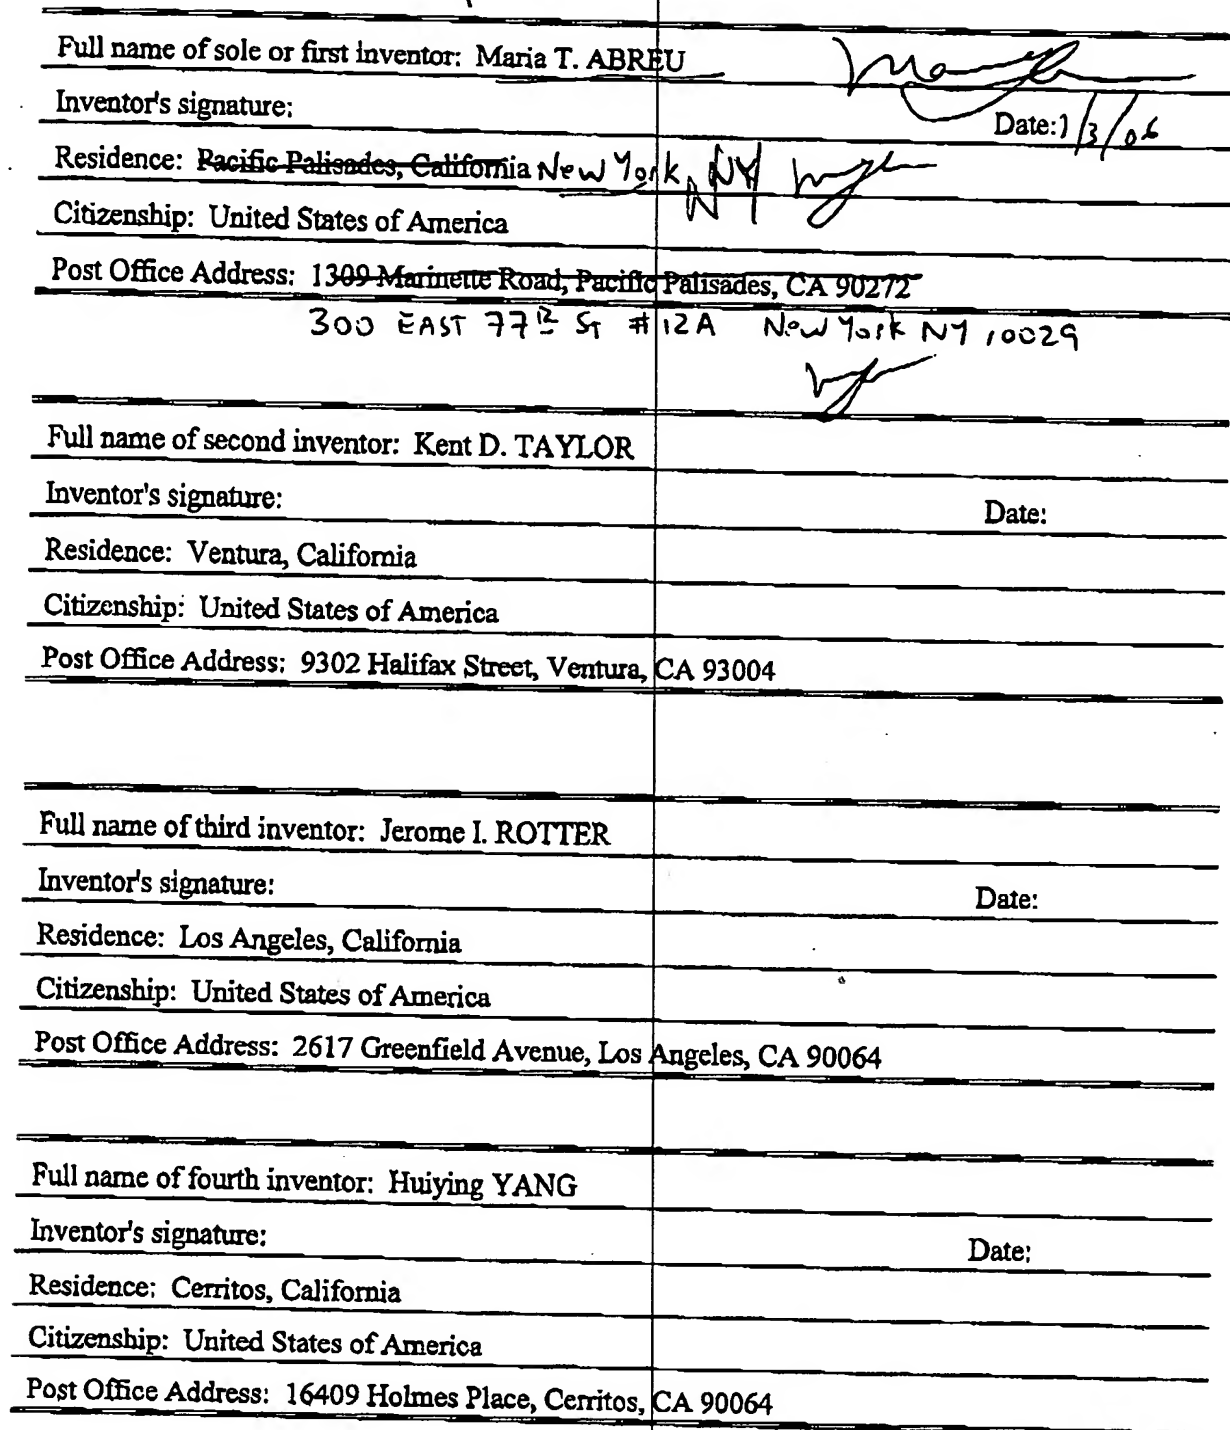 Full name of sole or first inventor: Maria T. ABREU
Inventor's signature:
Date: 1/3/06
Residence: Pacific Palisades, California New York, NY NY
Citizenship: United States of America
Post Office Address: 1309 Marinette Road, Pacific Palisades, CA 90272
300 EAST 77th ST #12A New York NY 10029
Full name of second inventor: Kent D. TAYLOR
Inventor's signature: Date:
Residence: Ventura, California
Citizenship: United States of America
Post Office Address: 9302 Halifax Street, Ventura, CA 93004
Full name of third inventor: Jerome I. ROTTER
Inventor's signature: Date:
Residence: Los Angeles, California
Citizenship: United States of America
Post Office Address: 2617 Greenfield Avenue, Los Angeles, CA 90064
Full name of fourth inventor: Huiying YANG
Inventor's signature: Date:
Residence: Cerritos, California
Citizenship: United States of America
Post Office Address: 16409 Holmes Place, Cerritos, CA 90064